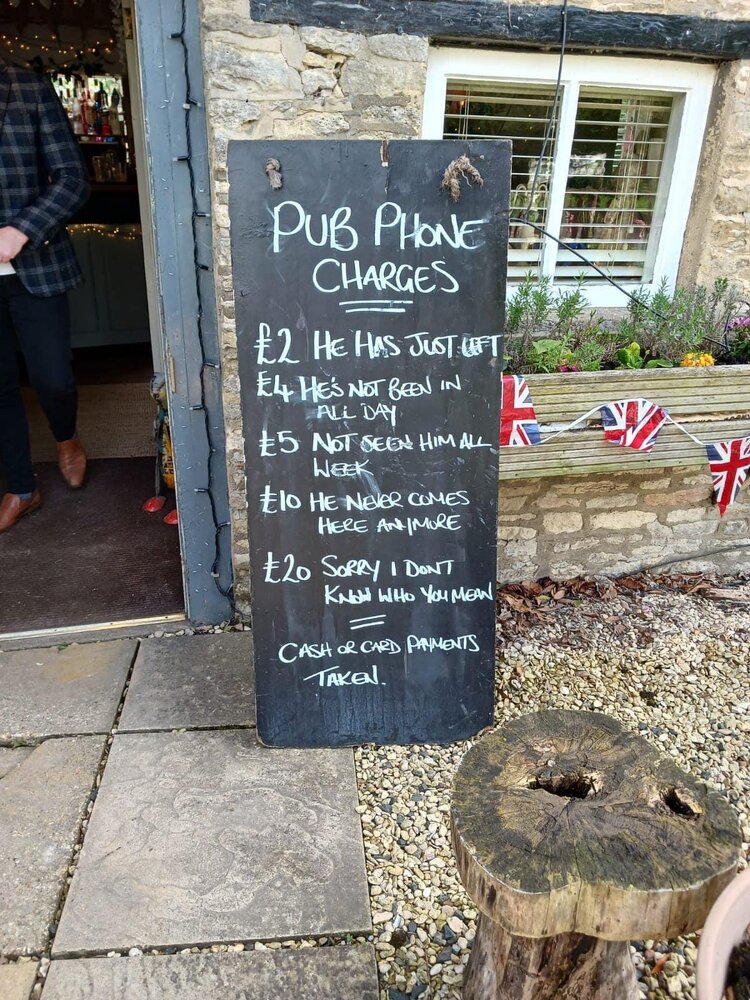 PUB PHONE
CHARGES
£2 HE HAS JUST LEFT
£4 HE'S NOT BEEN IN
ALL DAY
£5 NOT SEEN HIM ALL
WEEK
£10 HE NEVER COMES
HERE ANYMORE
£20 SORRY I DONT
KNOW WHO YOU MEAN
CASH OR CARD PAYMENTS
TAKEN.